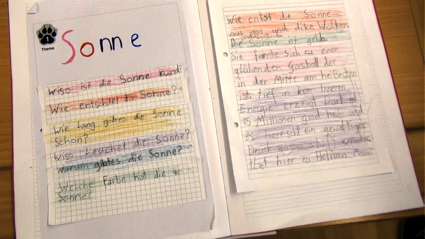 1
Thema
Sonne
Wiso ist die Sonne rund?
Wie entstet die Sonne?
Wie lang gibt es die Sonne
Schon?
Wiso leuchtet die Sonne?
warum gibt es die Sonne?
Welche Farbe hat die
Sonne?
Wie entstet die Sonne
aus gas und dike Wolken
Die Sonne ist gelb
Sie formte sich zu einer
glühenden Gasball der
in der Mitte am heißesten
ist tief in ihrem inneren
Energie erzeugt
15 Millionen grad heiß und
es herrscht ein gewaltiger
Druck
ist hier zu Helium